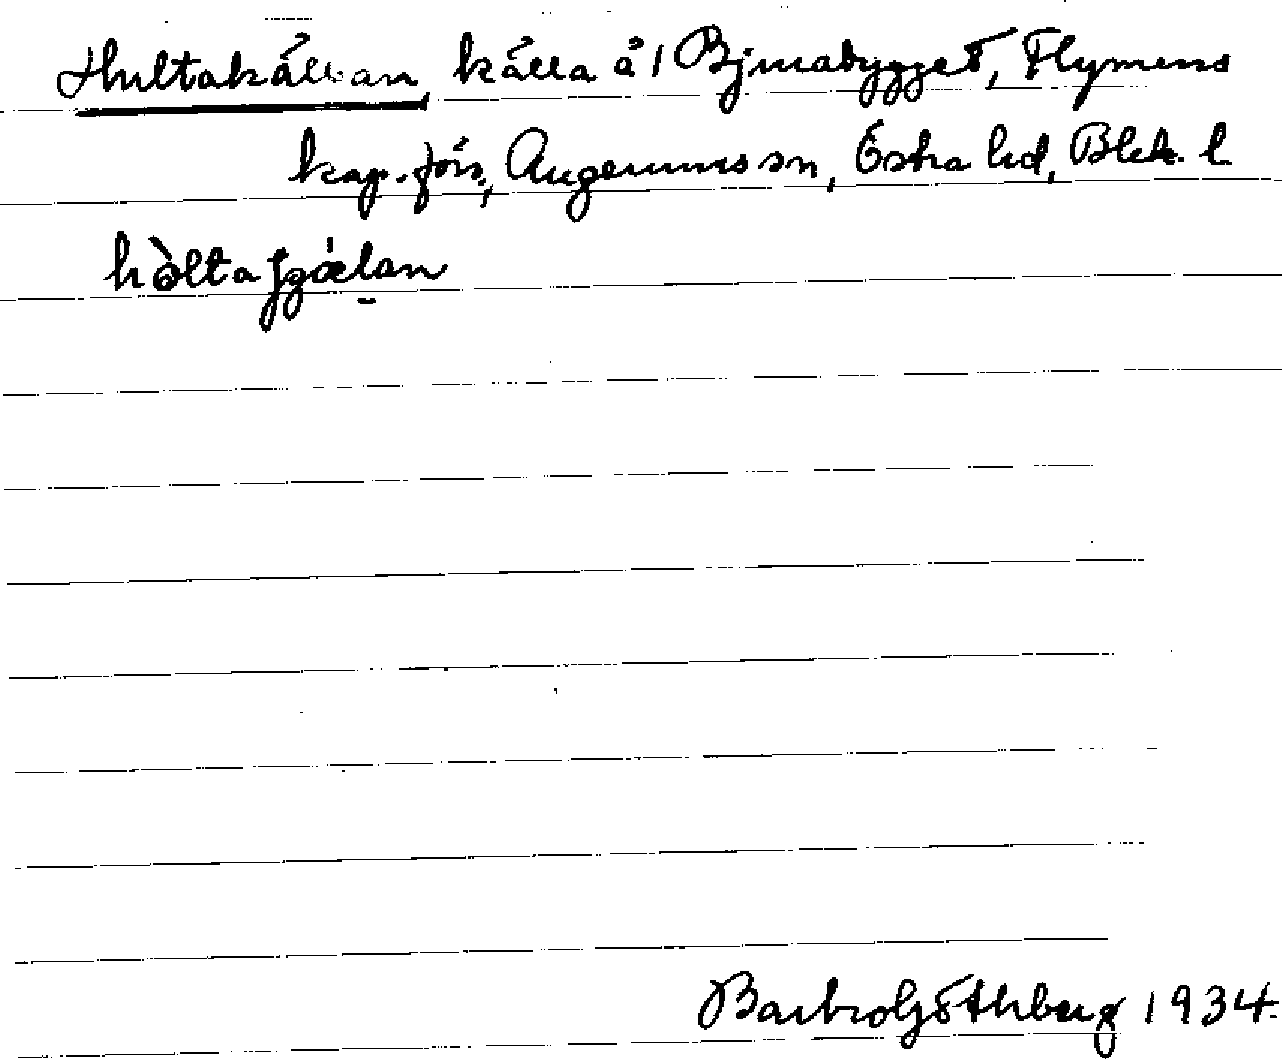 Hultakällan, källa å 1 Björnabygget, Flymens
kap.förs., Augerums sn, Östra hd, Blek. l
Barbro Göthberg 1934.